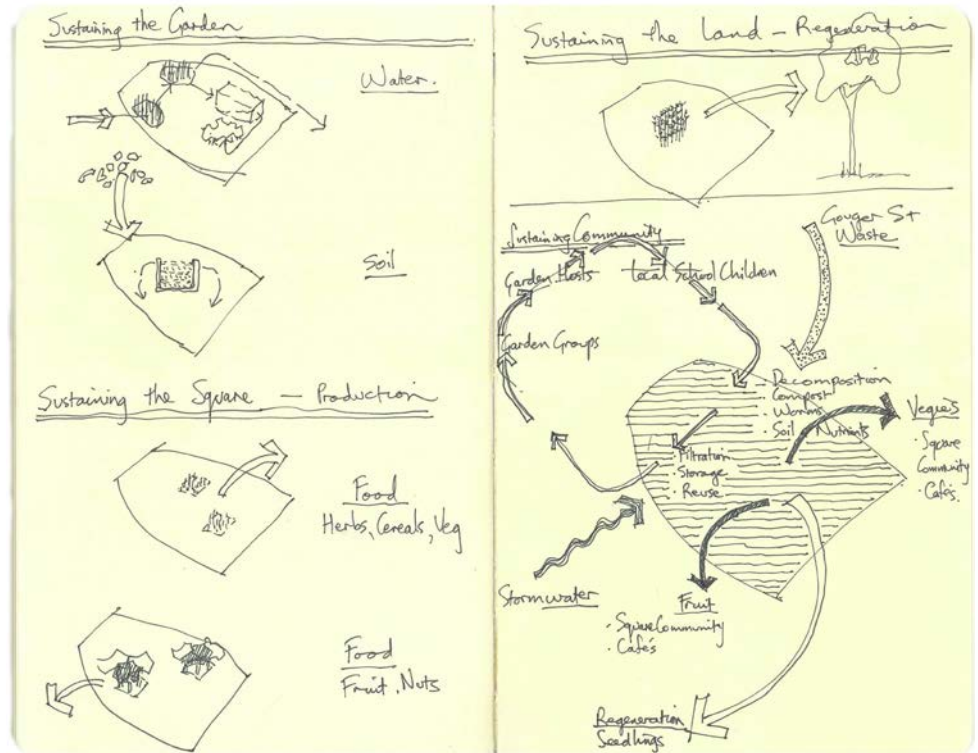 Sustaining the Garden
Water.
Soil
Sustaining the Square — Production
Food
Herbs, Cereals, Veg
Food
Fruit, Nuts
Sustaining the Land — Regeneration
Sustaining Community
Garden Hosts
Local School Children
Garden Groups
Gouger St
Waste
- Decomposition
- Compost
- Worms
- Soil Nutrients
Vegie's
· Square
Community
· Cafe's.
· Filtration
· Storage
· Reuse
Stormwater
Fruit
· Square Community
· Cafe's
Regeneration
Seedlings